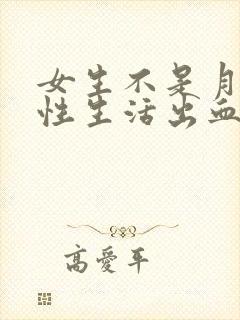 女生不是月
性生活出血
高愛平